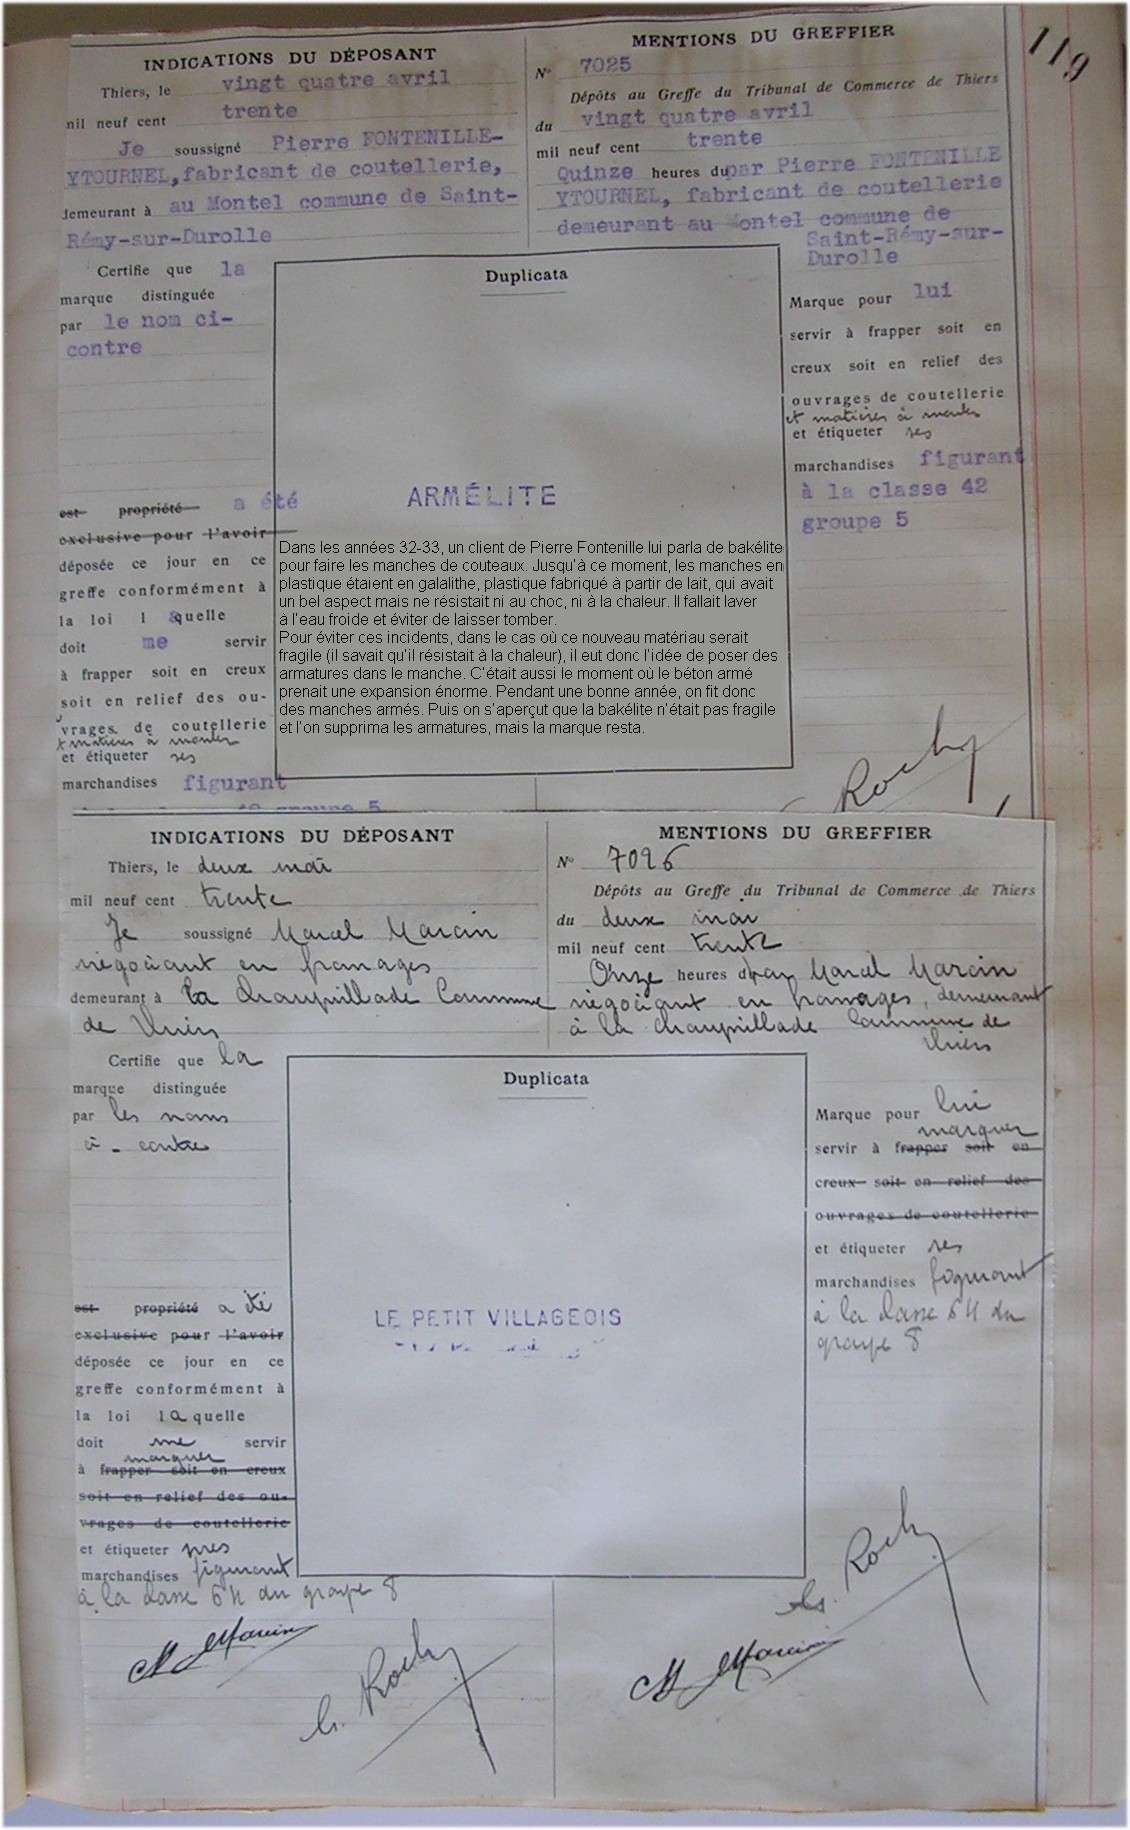 119
INDICATIONS DU DÉPOSANT
Thiers, le vingt quatre avril
mil neuf cent trente
Je soussigné Pierre FONTENILLE-
YTOURNEL, fabricant de coutellerie,
demeurant à au Montel commune de Saint-
Rémy-sur-Durolle
Certifie que la
marque distinguée
par le nom ci-
contre
est propriété a été
exclusive pour l'avoir
déposée ce jour en ce
greffe conformément à
la loi laquelle
doit me servir
à frapper soit en creux
soit en relief des ou-
vrages de coutellerie
et matières à manches
et étiqueter ses
marchandises figurant
MENTIONS DU GREFFIER
N° 7025
Dépôts au Greffe du Tribunal de Commerce de Thiers
du vingt quatre avril
mil neuf cent trente
Quinze heures du par Pierre FONTENILLE
YTOURNEL, fabricant de coutellerie
demeurant au Montel commune de
Saint-Rémy-sur-
Durolle
Marque pour lui
servir à frapper soit en
creux soit en relief des
ouvrages de coutellerie
et matières à manches
et étiqueter ses
marchandises figurant
à la classe 42
groupe 5
Duplicata
ARMÉLITE
Dans les années 32-33, un client de Pierre Fontenille lui parla de bakélite
pour faire les manches de couteaux. Jusqu'à ce moment, les manches en
plastique étaient en galalithe, plastique fabriqué à partir de lait, qui avait
un bel aspect mais ne résistait ni au choc, ni à la chaleur. Il fallait laver
à l'eau froide et éviter de laisser tomber.
Pour éviter ces incidents, dans le cas où ce nouveau matériau serait
fragile (il savait qu'il résistait à la chaleur), il eut donc l'idée de poser des
armatures dans le manche. C'était aussi le moment où le béton armé
prenait une expansion énorme. Pendant une bonne année, on fit donc
des manches armés. Puis on s'aperçut que la bakélite n'était pas fragile
et l'on supprima les armatures, mais la marque resta.
Roche
INDICATIONS DU DÉPOSANT
Thiers, le deux mai
mil neuf cent trente
Je soussigné Marcel Marcin
négociant en fromages
demeurant à la Chaupillade Commune
de Thiers
Certifie que la
marque distinguée
par les noms
ci-contre
est propriété a été
exclusive pour l'avoir
déposée ce jour en ce
greffe conformément à
la loi laquelle
doit me servir
marquer
à frapper soit en creux
soit en relief des ou-
vrages de coutellerie
et étiqueter mes
marchandises figurant
à la classe 64 du groupe 8
MENTIONS DU GREFFIER
N° 7026
Dépôts au Greffe du Tribunal de Commerce de Thiers
du deux mai
mil neuf cent trente
Onze heures du par Marcel Marcin
négociant en fromages, demeurant
à la Chaupillade Commune de
Thiers
Marque pour lui
marquer
servir à frapper soit en
creux soit en relief des
ouvrages de coutellerie
et étiqueter ses
marchandises figurant
à la classe 64 du
groupe 8
Duplicata
LE PETIT VILLAGEOIS
M Marcin
Roche
Roche
M Marcin